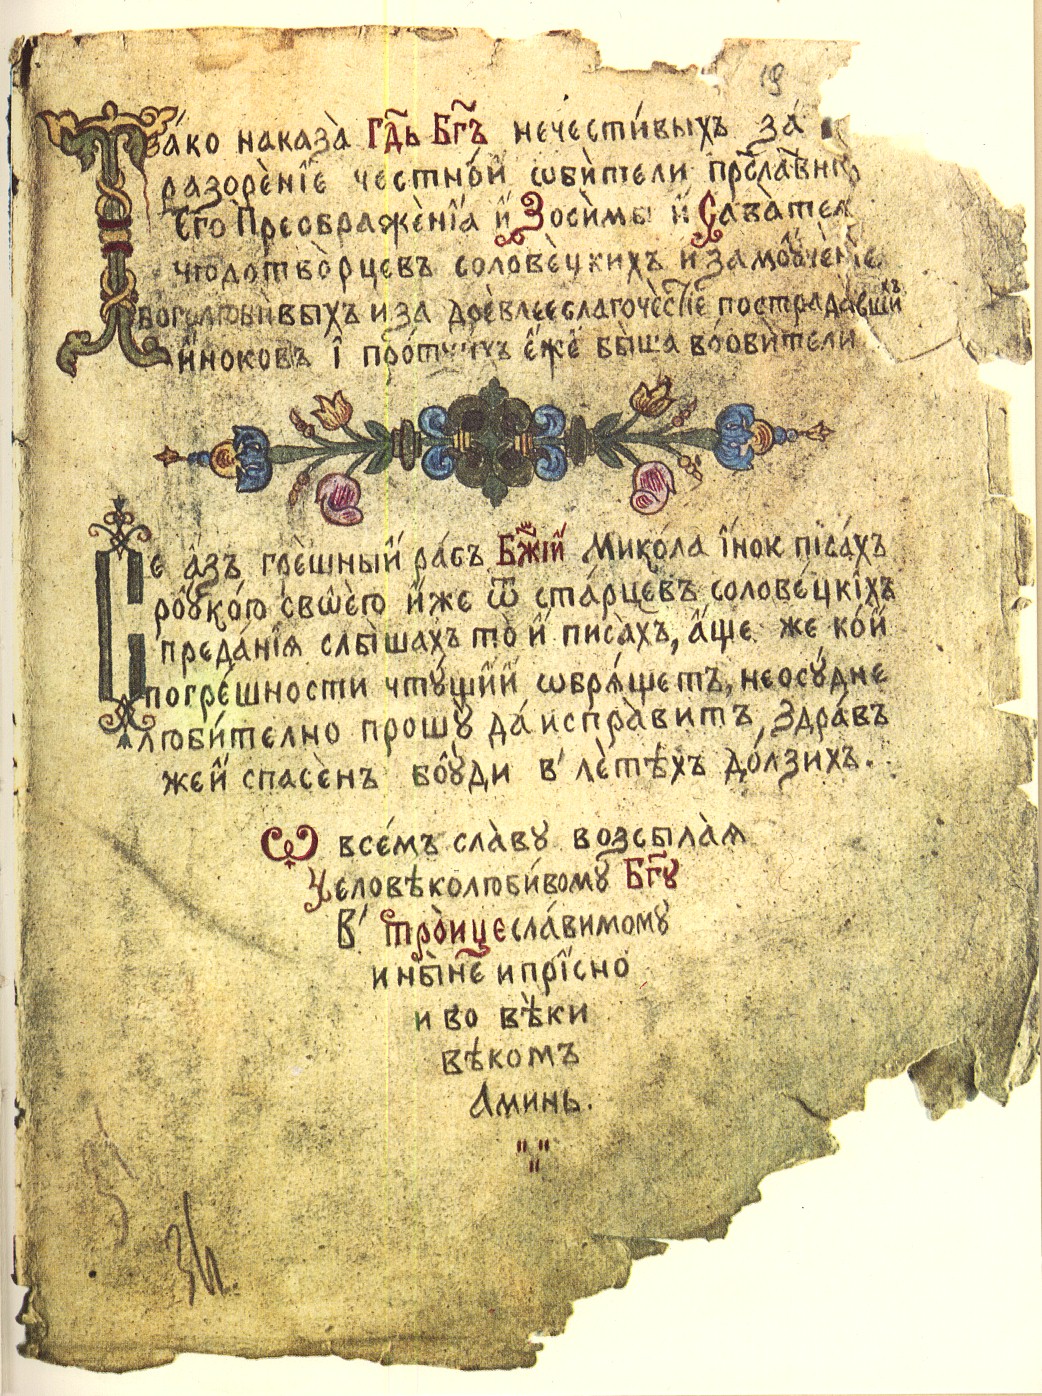 18
Та́ко наказа̀ Гд҃ь Бг҃ъ нечести́выхъ за́
разорѐнїе честно́й ѡби̍тели прⷭ҇ла́вна
Єго̀ Преображе́нїѧ и҆ Зоси́мы и҆ Сава́теѧ
чꙋдотво̀рцевъ соловѐцкихъ и замꙋче́нїе
боголюби̍выхъ и за дрѐвлее благочѐстїе пострада́вшихъ
и҆́ноковъ і про́тчихъ е҆́же бы́ша во ѻби̍тели
Се а҆́зъ грѐшный ра́бъ Бж҃їй Мико́ла і҆нок писа́хъ
рꙋко́ю своѐю и҆же ѿ ста́рцевъ солове́цкїхъ
преда́нїѧ слы́шахъ то̀ и҆ писа́хъ, а҆́ще же ко́й
погре́шности чтꙋ́щий ѡбрѧ́щетъ, неосꙋ́дне
люби́телно прошꙋ̀ да́ испра̀витъ, здра́въ
же и҆ спасѐнъ бꙋ́ди в' лѐтѣхъ до́лзихъ.
Ѡ всѐмъ сла̀вꙋ возсыла̀ѧ
Человѣколюби́вомꙋ Бг҃ꙋ
В' тро̀ице сла́вимомꙋ
и ны̀не и при̍сно
и во вѣ̀ки
вѣ̀комъ
Аминь.